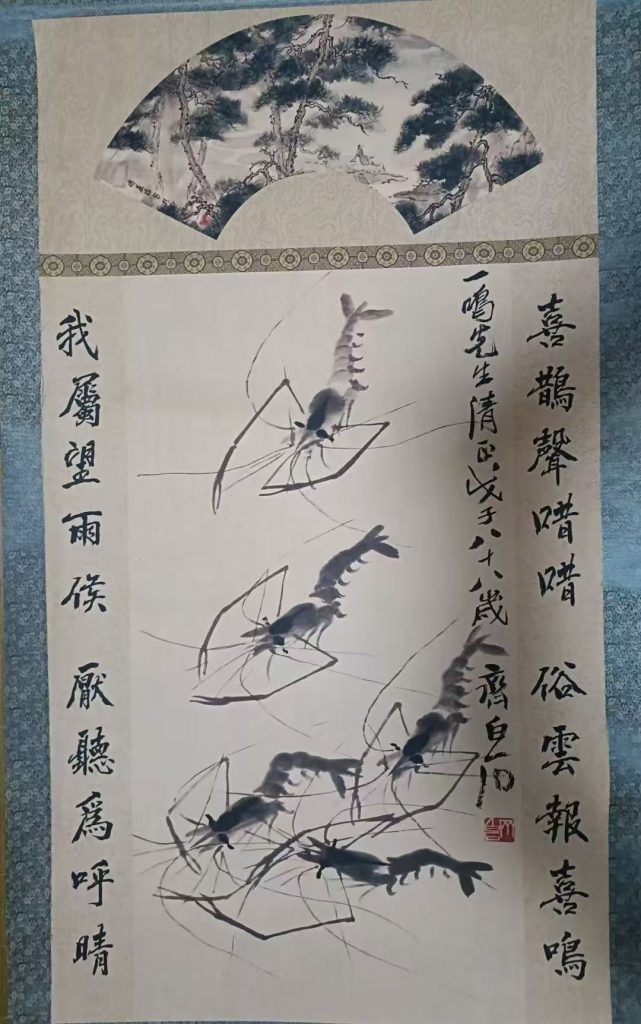 喜鵲聲唶唶 俗雲報喜鳴
一鳴先生清正戊子八十八歲
齊白石
我屬望雨候 厭聽爲呼晴